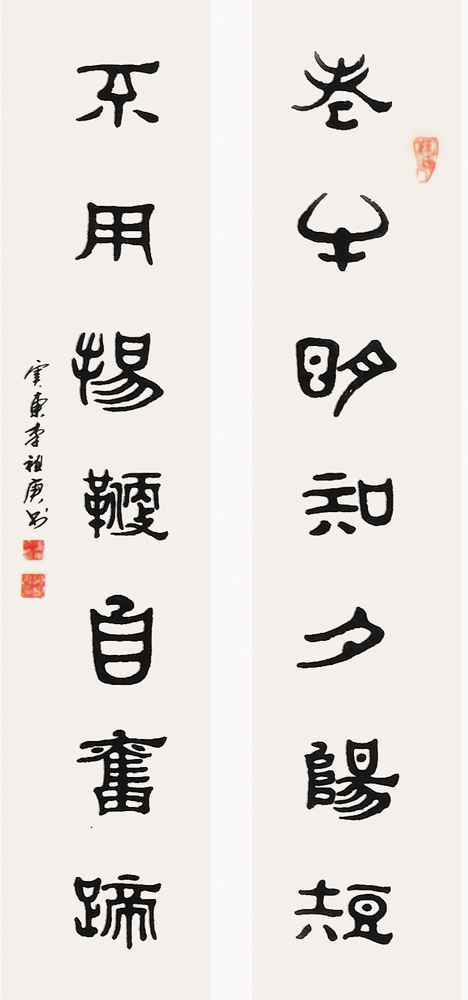 老牛明知夕陽短
不用揚鞭自奮蹄
東李祖庚书